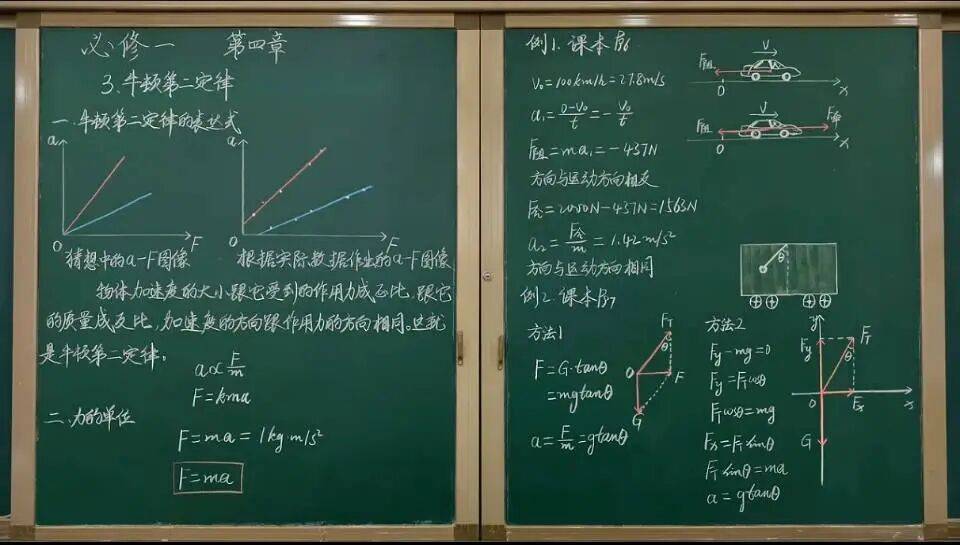 必修一 第四章
3.牛顿第二定律
一.牛顿第二定律的表达式
a
O
F
a
O
F
猜想中的a-F图像
根据实际数据作出的a-F图像
物体加速度的大小跟它受到的作用力成正比,跟它
的质量成反比,加速度的方向跟作用力的方向相同。这就
是牛顿第二定律。
a∝F/m
F=kma
二.力的单位
F=ma=1kg·m/s²
F=ma
例1.课本P₈₆
V₀=100km/h=27.8m/s
a₁=(0-V₀)/t=-V₀/t
F阻=ma₁=-437N
方向与运动方向相反
F合=2000N-437N=1563N
a₂=F合/m=1.42m/s²
方向与运动方向相同
V
F阻
O
x
V
F阻
F牵
O
x
θ
例2.课本P₈₇
方法1
F=G·tanθ
=mgtanθ
a=F/m=gtanθ
F_T
θ
O
F
G
方法2
Fy-mg=0
Fy=F_Tcosθ
F_Tcosθ=mg
Fx=F_Tsinθ
F_Tsinθ=ma
a=gtanθ
y
Fy
F_T
θ
O
Fx
x
G